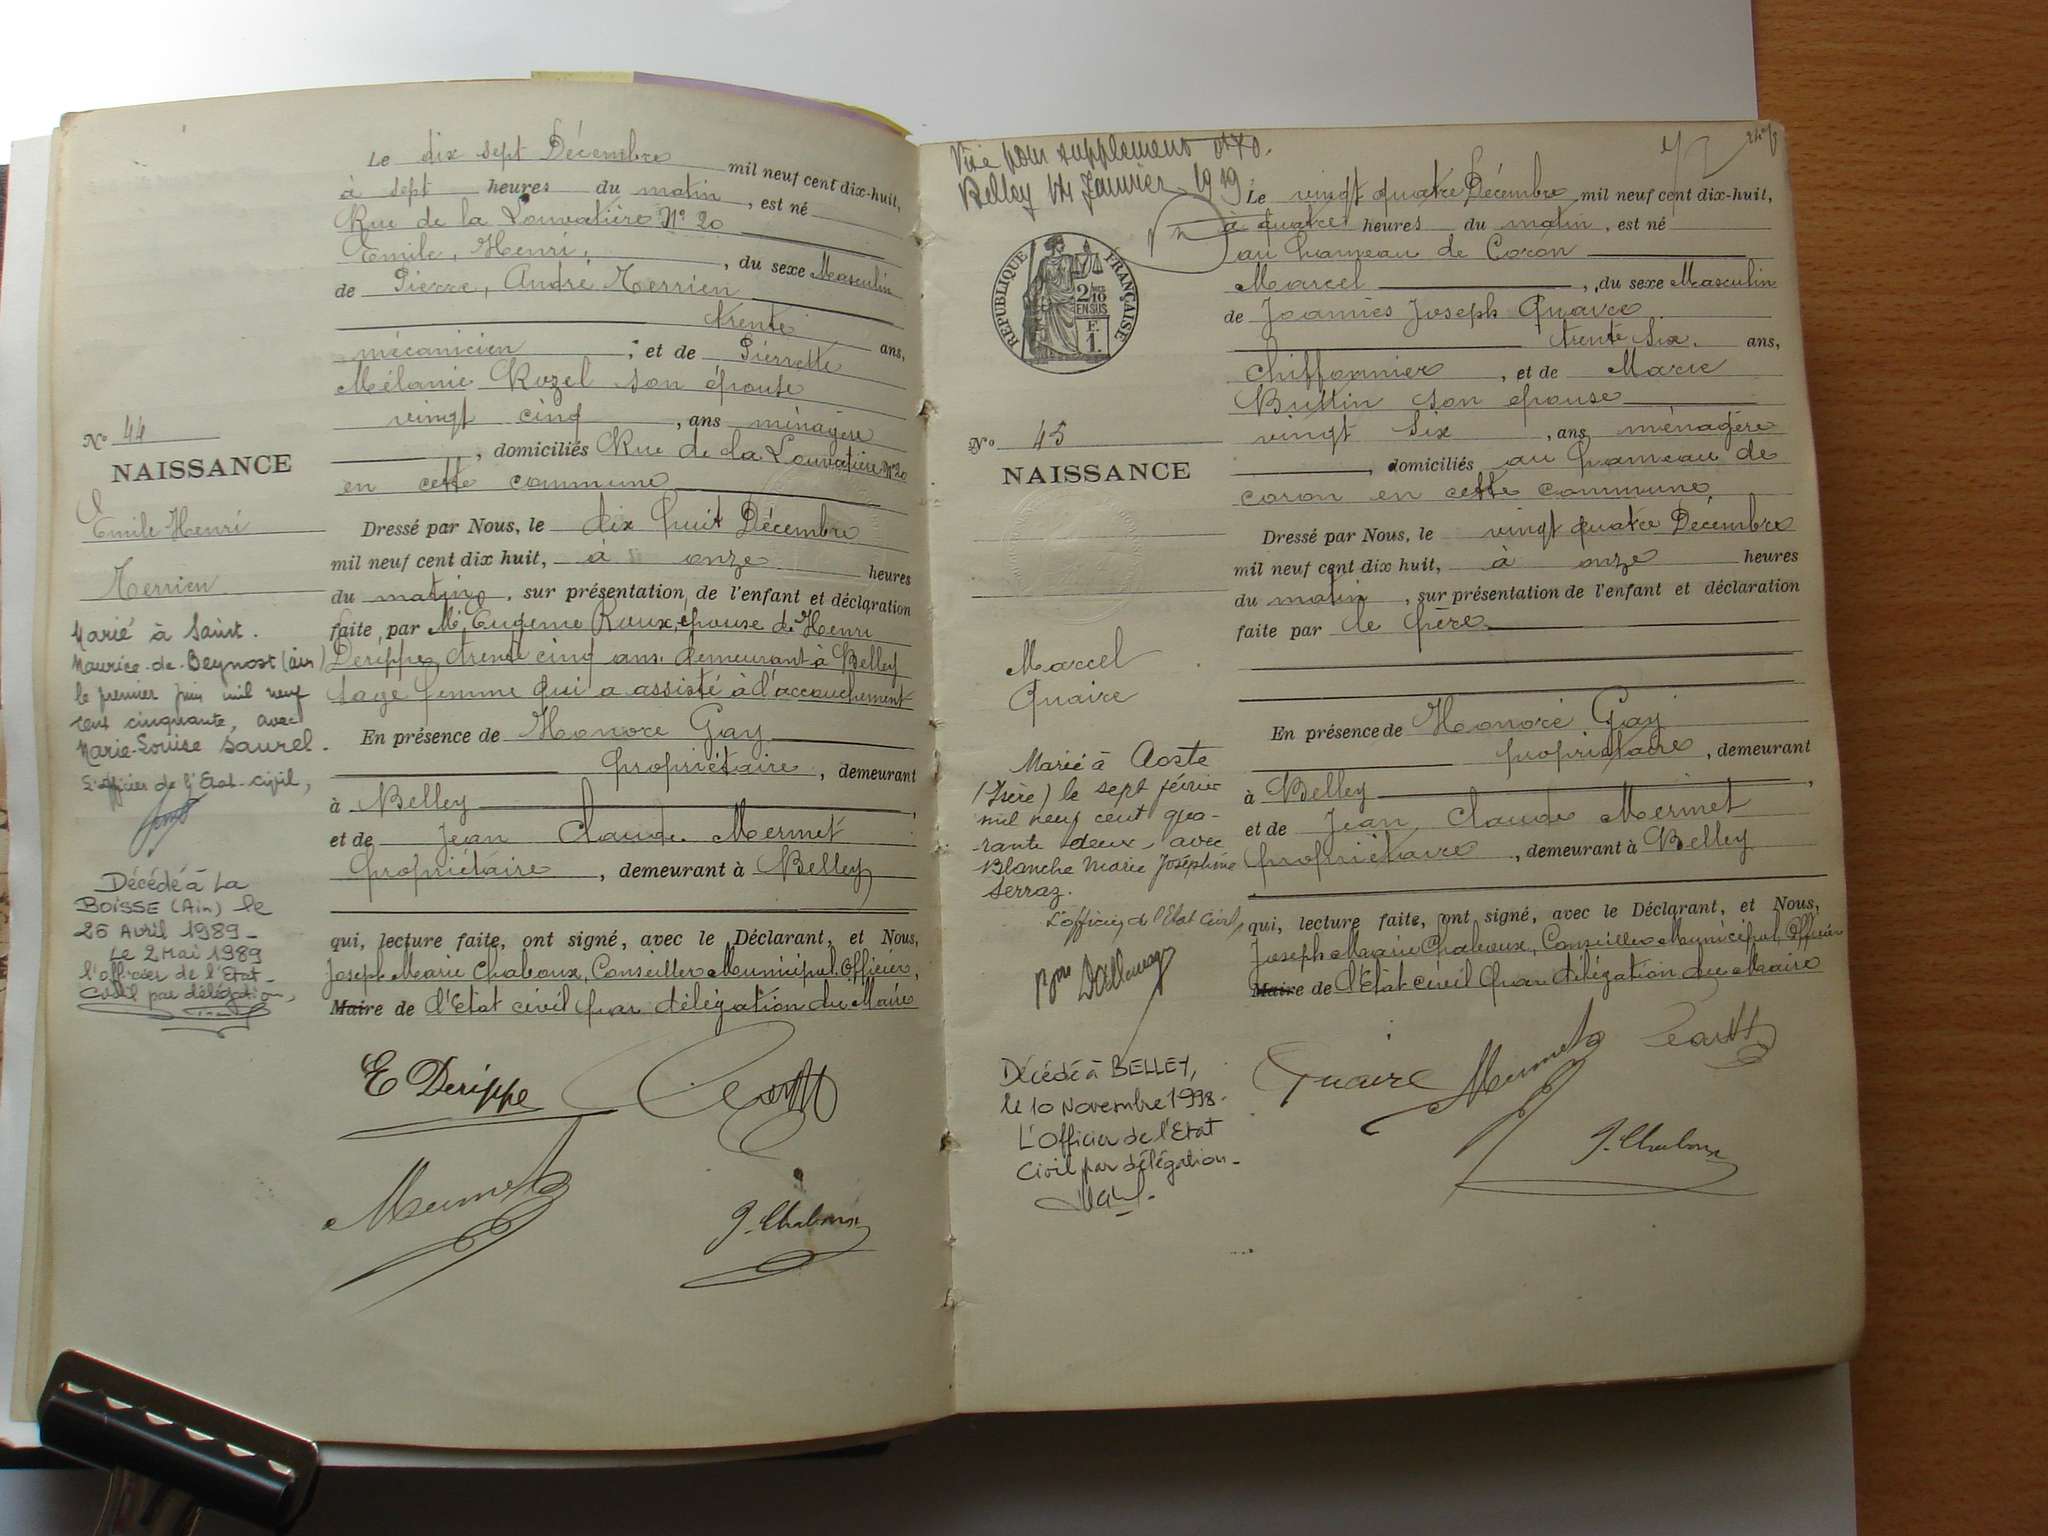 Le dix sept Décembre mil neuf cent dix-huit,
à sept heures du matin, est né
Rue de la Louvatière N° 20
Emile, Henri, du sexe Masculin
de Pierre, André Merrien
trente ans,
mécanicien ; et de Pierrette
Mélanie Rozel son épouse
vingt cinq, ans ménagère
, domiciliés Rue de la Louvatière N° 20
en cette commune
Dressé par Nous, le dix huit Décembre
mil neuf cent dix huit, à onze heures
du matin, sur présentation de l'enfant et déclaration
faite par Me Eugenie Roux, épouse de Henri
Derippe, trente cinq ans demeurant à Belley
sage femme qui a assisté à l'accouchement
En présence de Honoré Gay
propriétaire, demeurant
à Belley
et de Jean Claude Mermet
propriétaire, demeurant à Belley
qui, lecture faite, ont signé, avec le Déclarant, et Nous,
Joseph Marie Chaboux, Conseiller Municipal Officier,
Maire de l'Etat civil par délégation du Maire
E Derippe
Mermet
J. Chaboux
N° 44
NAISSANCE
Emile Henri
Merrien
Marié à Saint.
Maurice-de-Beynost (Ain)
le premier juin mil neuf
cent cinquante, avec
Marie-Louise Saurel.
L'officier de l'Etat-civil,
Décédé à La
BOISSE (Ain) le
25 Avril 1989-
Le 2 Mai 1989
l'officier de l'Etat-
Civil par délégation,
Visé pour supplement
Belley 14 Janvier 1919
RÉPUBLIQUE FRANÇAISE
2/10
EN SUS
F.
1.
Le vingt quatre Décembre mil neuf cent dix-huit,
à quatre heures du matin, est né
au hameau de Coron
Marcel, du sexe Masculin
de Joannès Joseph Quaire
trente six ans,
chiffonnier, et de Marie
Buttin son épouse
vingt six, ans ménagère
, domiciliés au hameau de
coron en cette commune,
Dressé par Nous, le vingt quatre Décembre
mil neuf cent dix huit, à onze heures
du matin, sur présentation de l'enfant et déclaration
faite par le père
En présence de Honoré Gay
propriétaire, demeurant
à Belley,
et de Jean Claude Mermet
propriétaire, demeurant à Belley
qui, lecture faite, ont signé, avec le Déclarant, et Nous,
Joseph Marie Chaboux, Conseiller Municipal Officier
Maire de l'Etat civil par délégation du Maire
Quaire Mermet
J. Chaboux
N° 45
NAISSANCE
Marcel
Quaire
Marié à Aoste
(Isère) le sept février
mil neuf cent qua-
rante deux, avec
Blanche Marie Joséphine
Serraz.
L'officier de l'Etat Civil,
Décédé à BELLEY,
le 10 Novembre 1998.
L'Officier de l'Etat
Civil par délégation-